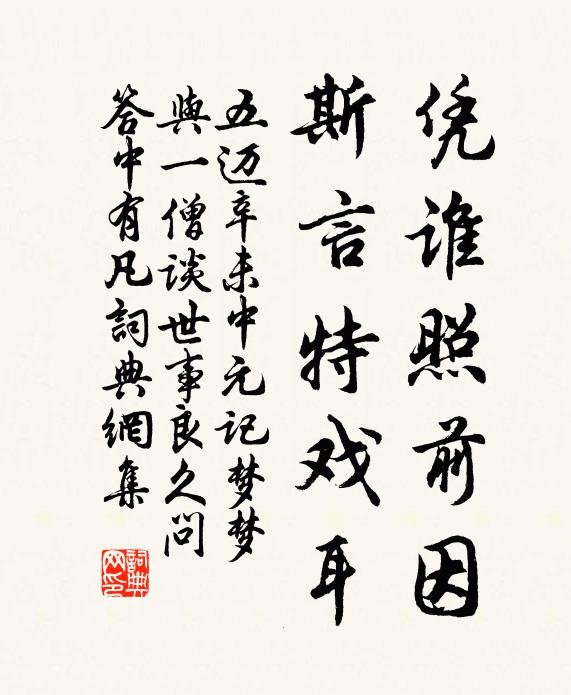 凭谁照前因
斯言特戏耳
五迈辛未中元记梦梦
与一僧谈世事良久问
答中有凡詞典網集
詞典网印